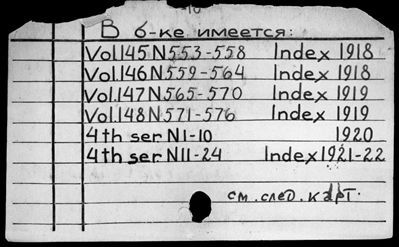 В б-ке имеется:
Vol.145 N553-558 Index 1918
Vol.146 N559-564 Index 1918
Vol.147 N565-570 Index 1919
Vol.148 N571-576 Index 1919
4th ser N1-10 1920
4th ser N11-24 Index 1921-22
см. след. карт.